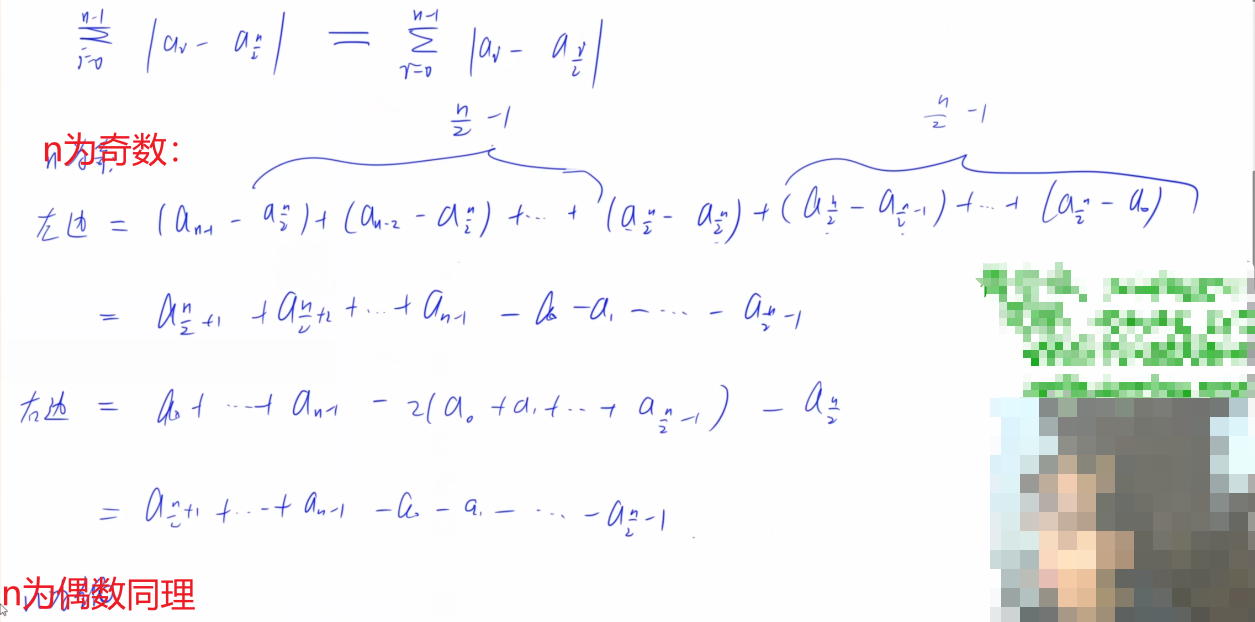 n-1 ∑ i=0 |aᵢ - a_{n/2}| = n-1 ∑ i=0 |aᵢ - a_{i/2}|
n/2 -1 n/2 -1
n为奇数：
左边 = (a_{n-1} - a_{n/2}) + (a_{n-2} - a_{n/2}) + ... + (a_{n/2} - a_{n/2}) + (a_{n/2} - a_{n/2-1}) + ... + (a_{n/2} - a₀)
= a_{n/2+1} + a_{n/2+2} + ... + a_{n-1} - a₀ - a₁ - ... - a_{n/2-1}
右边 = a₀ + ... + a_{n-1} - 2(a₀ + a₁ + ... + a_{n/2-1}) - a_{n/2}
= a_{n/2+1} + ... + a_{n-1} - a₀ - a₁ - ... - a_{n/2-1}
n为偶数同理